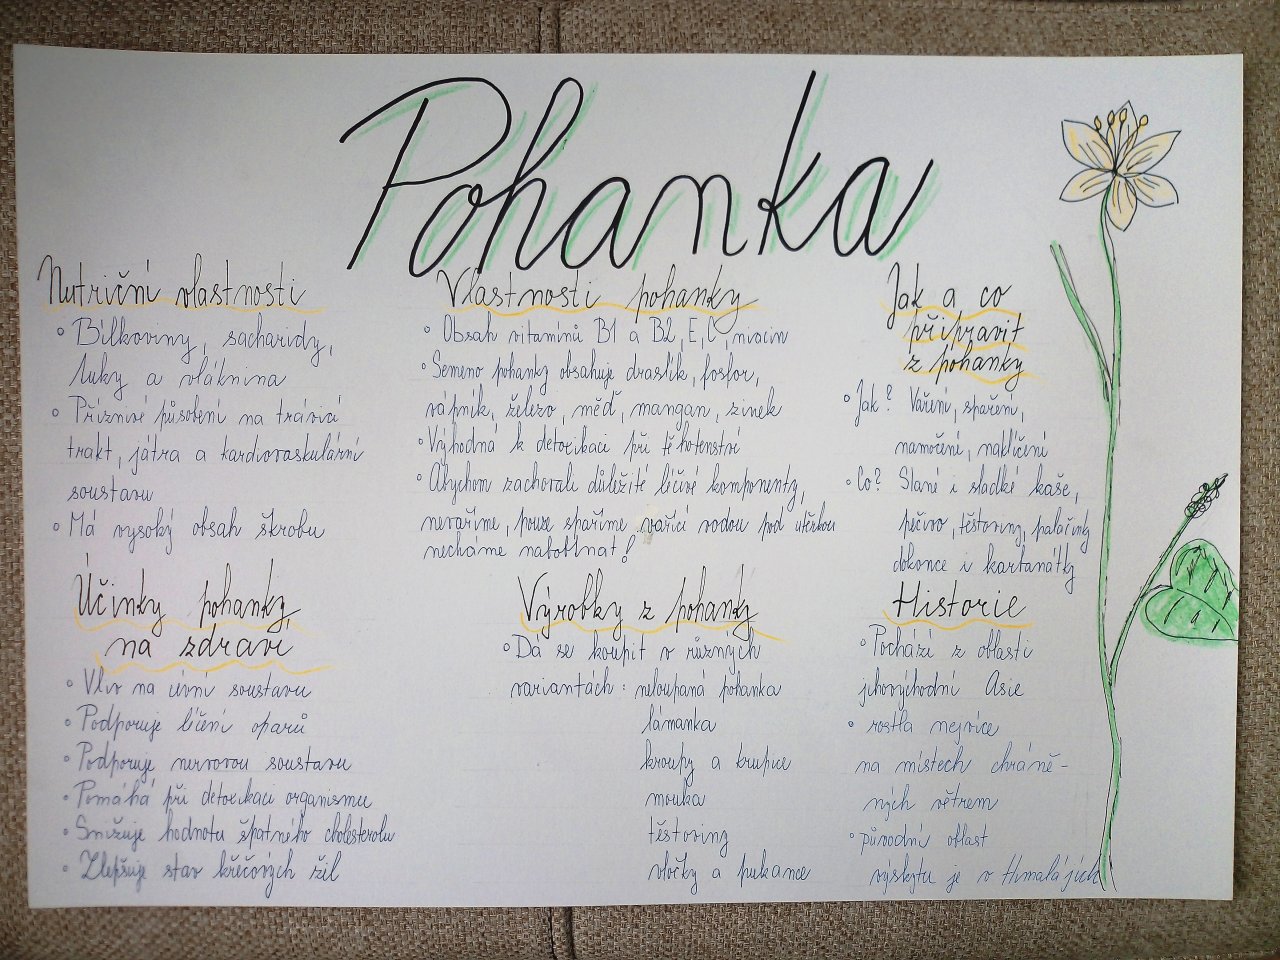 Pohanka
Nutriční vlastnosti
° Bílkoviny, sacharidy,
tuky a vláknina
° Příznivé působení na trávicí
trakt, játra a kardiovaskulární
soustavu
° Má vysoký obsah škrobu
Vlastnosti pohanky
° Obsah vitamínů B1 a B2, E, C, niacin
° Semeno pohanky obsahuje draslík, fosfor,
vápník, železo, měď, mangan, zinek
° Výhodná k detoxikaci při těhotenství
° Abychom zachovali důležité léčivé komponenty,
nevaříme, pouze spaříme vařící vodou pod utěrkou
necháme nabobtnat!
Jak a co
připravit
z pohanky
° Jak? Vaření, spaření,
namočení, naklíčení
° Co? Slané i sladké kaše,
pečivo, těstoviny, palačinky
dokonce i karbanátky
Účinky pohanky
na zdraví
° Vliv na cévní soustavu
° Podporuje léčení oparů
° Podporuje nervovou soustavu
° Pomáhá při detoxikaci organismu
° Snižuje hodnotu špatného cholesterolu
° Zlepšuje stav křečových žil
Výrobky z pohanky
° Dá se koupit v různých
variantách: neloupaná pohanka
lámanka
kroupy a krupice
mouka
těstoviny
vločky a pukance
Historie
° Pochází z oblasti
jihovýchodní Asie
° rostla nejvíce
na místech chráně-
ných větrem
° původní oblast
výskytu je v Himalájích